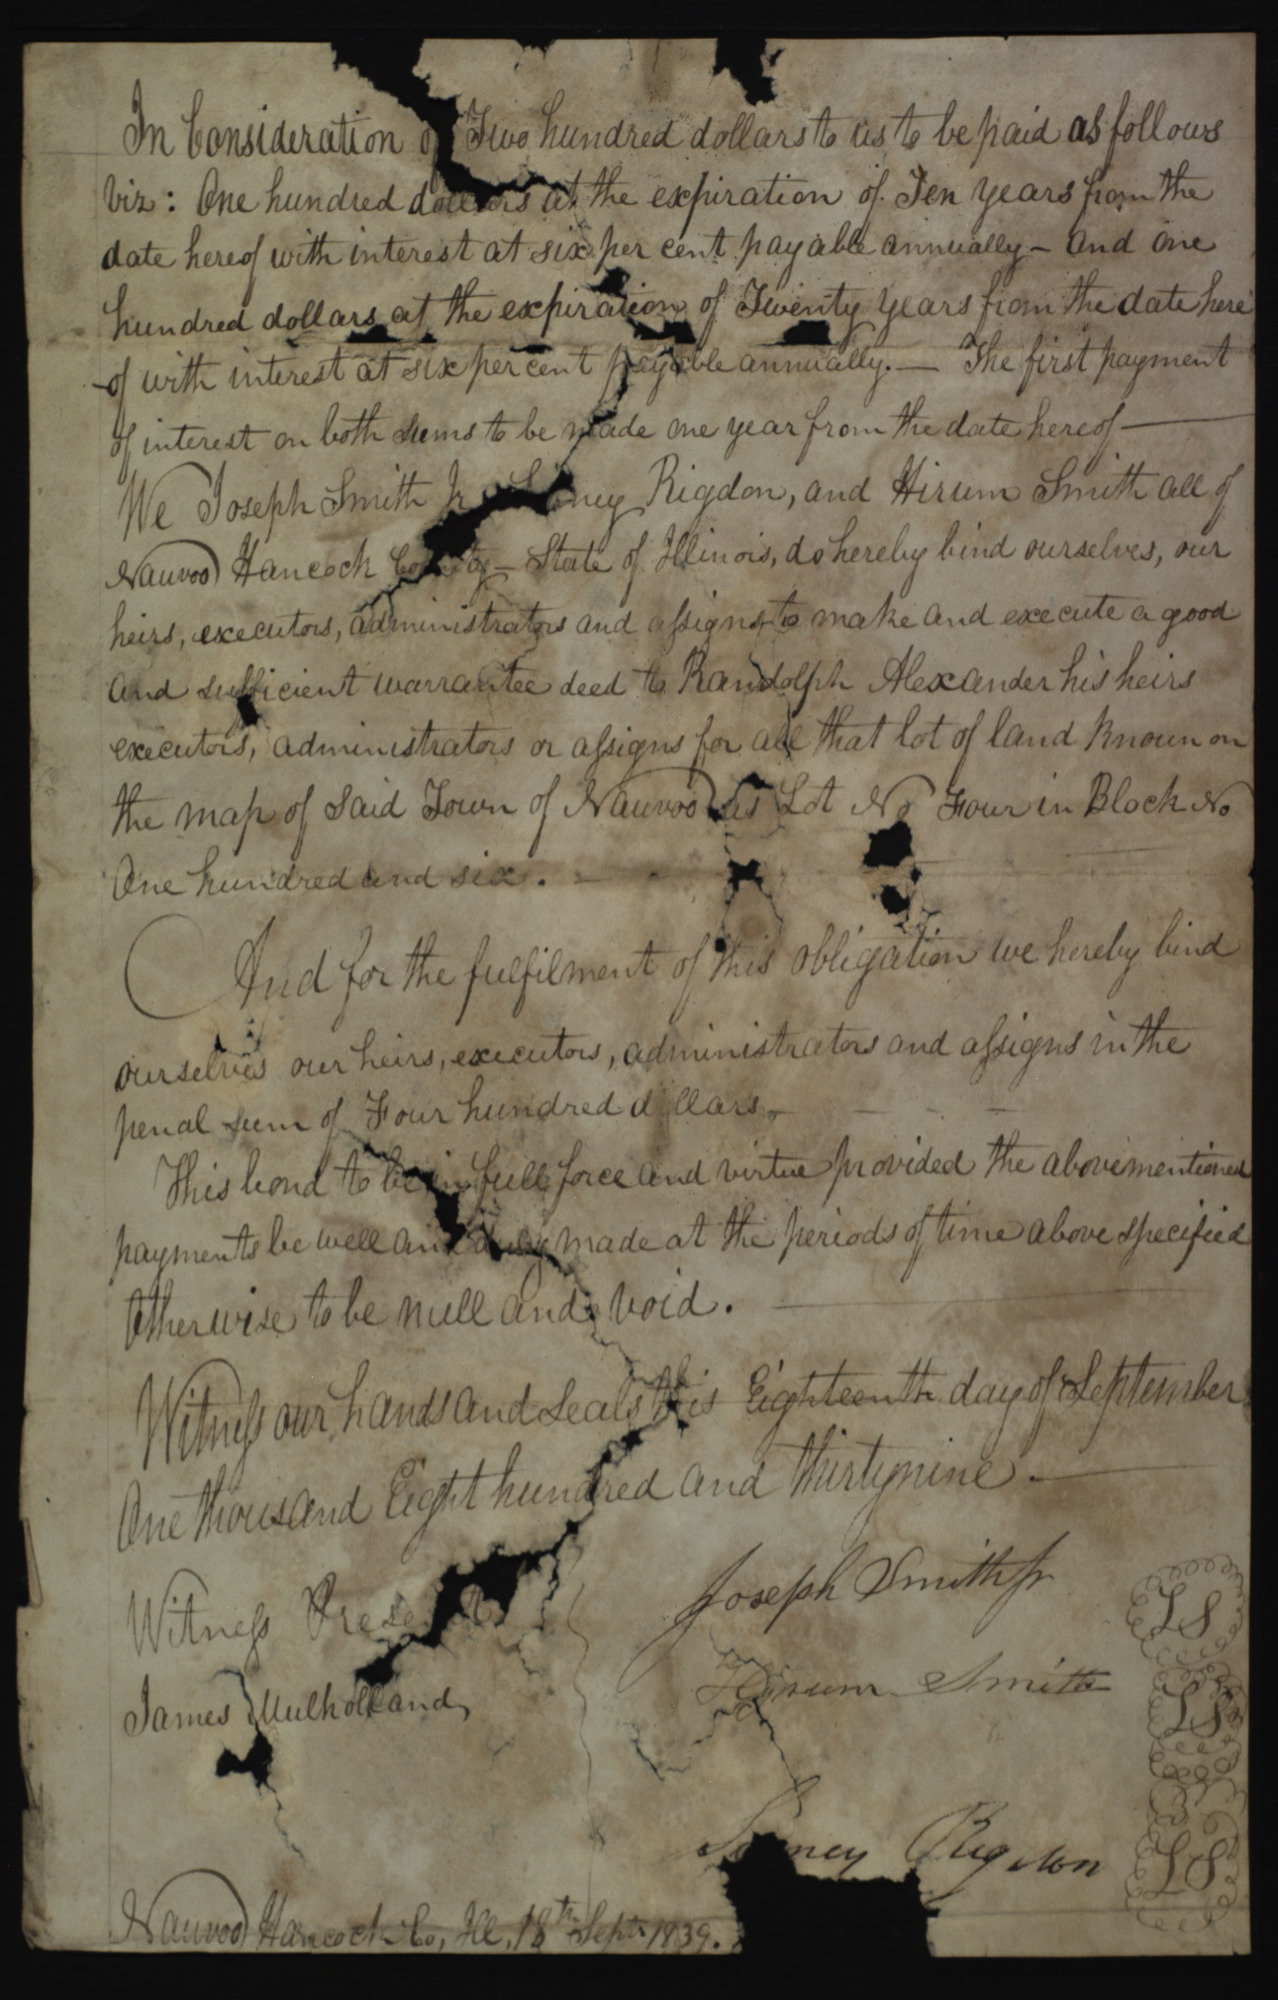 In Consideration of Two hundred dollars to us to be paid as follows
viz: One hundred dollars at the expiration of Ten years from the
date hereof with interest at six per cent payable annually – And one
hundred dollars at the expiration of Twenty years from the date here
-of with interest at six per cent payable annually. — The first payment
of interest on both sums to be made one year from the date hereof —
We Joseph Smith Jr Sidney Rigdon, and Hirum Smith all of
Nauvoo Hancock County – State of Illinois, do hereby bind ourselves, our
heirs, executors, administrators and assigns to make and execute a good
and sufficient warrantee deed to Randolph Alexander his heirs
executors, administrators or assigns for all that lot of land known on
the map of said Town of Nauvoo as Lot No Four in Block No
One hundred and six. —
And for the fulfilment of this obligation we hereby bind
ourselves our heirs, executors, administrators and assigns in the
penal sum of Four hundred dollars. – – – –
This bond to be in full force and virtue provided the abovementioned
payments be well and duly made at the periods of time above specified
Otherwise to be null and void. —
Witness our hands and seals this Eighteenth day of September
One thousand Eight hundred and thirtynine. —
Witness Present
Joseph Smith Jr LS
James Mulholland
Hirum Smith LS
Sidney Rigdon LS
Nauvoo Hancock Co, Ill, 18th Sept 1839.